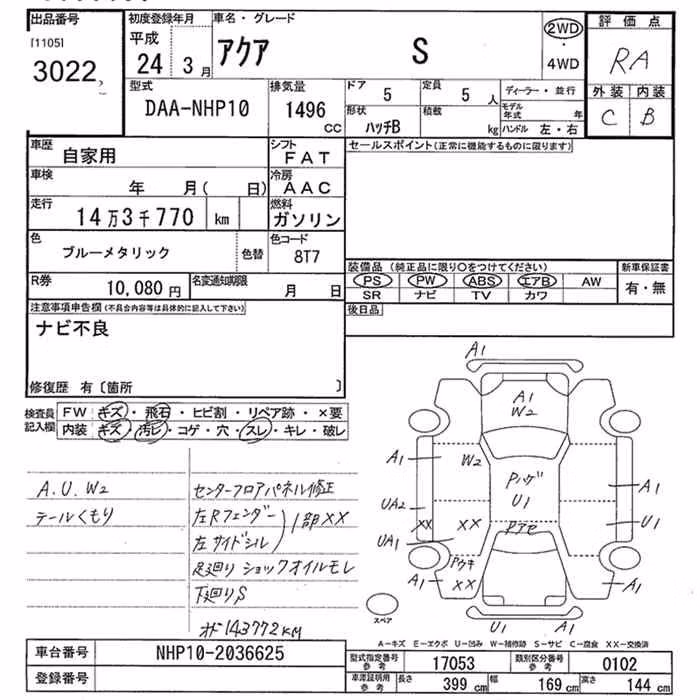 出品番号 初度登録年月 車名・グレード 2WD ・ 4WD 評価点
[1105] 3022 平成 24 3月 アクア S RA
型式 排気量 ドア 5 定員 5人 ディーラー・並行 外装 内装
DAA-NHP10 1496 CC 形状 ハッチB 積載 kg モデル年式 年 ハンドル 左・右 C B
車歴 自家用 シフト FAT セールスポイント(正常に機能するものに限ります)
車検 年 月( 日) 冷房 AAC
走行 14万3千770 km 燃料 ガソリン
色 ブルーメタリック 色替 色コード 8T7
R券 10,080円 名変通知期限 月 日
装備品(純正品に限り○をつけてください) 新車保証書
PS PW ABS エアB AW 有・無
SR ナビ TV カワ
後日品
注意事項申告欄(不具合内容等は具体的に記入して下さい)
ナビ不良
修復歴 有〔箇所 〕
検査員記入欄 FW キズ・飛石・ヒビ割・リペア跡・×要
内装 キズ・汚レ・コゲ・穴・スレ・キレ・破レ
A.U.W2
テールくもり
センターフロアパネル修正
左Rフェンダー
左サイドシル
1部XX
足廻り ショックオイルモレ
下廻りS
オド143772KM
A1
A1
W2
A1
W2
Pハゲ
U1
A1
UA2
XX
XX
U1
UA1
Pアセ
Pウキ
A1
XX
A1
U1
A1
スペア
A-キズ E-エクボ U-凹み W-補修跡 S-サビ C-腐食 XX-交換済
車台番号 NHP10-2036625
登録番号
型式指定番号 参考 17053 類別区分番号 参考 0102
車庫証明用 参考 長さ 399 cm 幅 169 cm 高さ 144 cm